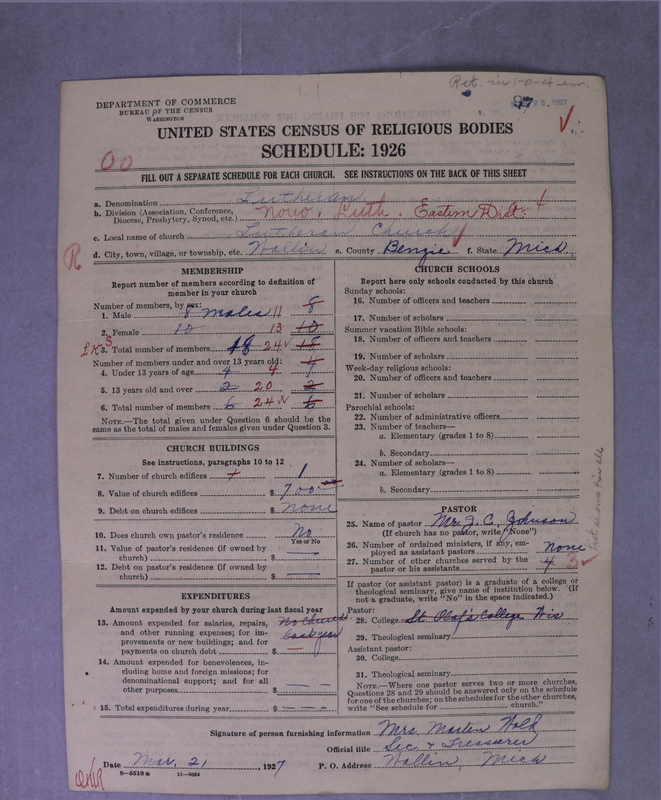 Ret. in
DEPARTMENT OF COMMERCE
BUREAU OF THE CENSUS
WASHINGTON
UNITED STATES CENSUS OF RELIGIOUS BODIES
SCHEDULE: 1926
OO
FILL OUT A SEPARATE SCHEDULE FOR EACH CHURCH. SEE INSTRUCTIONS ON THE BACK OF THIS SHEET
a. Denomination Lutheran
b. Division (Association, Conference, Diocese, Presbytery, Synod, etc.) Luth. Eastern Dist.
c. Local name of church Lutheran Church
d. City, town, village, or township, etc. Wallin e. County Benzie f. State Mich
R
MEMBERSHIP
Report number of members according to definition of
member in your church
Number of members, by sex:
1. Male 8 males 11 8
2. Female 10 13 10
3. Total number of members 18 24 18
Number of members under and over 13 years old:
4. Under 13 years of age 4 4 4
5. 13 years old and over 2 20 2
6. Total number of members 6 24 6
NOTE.—The total given under Question 6 should be
same as the total of males and females given under Question 3.
CHURCH BUILDINGS
See instructions, paragraphs 10 to 12
7. Number of church edifices 1
8. Value of church edifices $ 700
9. Debt on church edifices $ none
10. Does church own pastor's residence No
Yes or No
11. Value of pastor's residence (if owned by
church) $ —
12. Debt on pastor's residence (if owned by
church) $ —
EXPENDITURES
Amount expended by your church during last fiscal year
13. Amount expended for salaries, repairs,
and other running expenses; for im-
provements or new buildings; and for
payments on church debt $ —
No Church
book year
14. Amount expended for benevolences, in-
cluding home and foreign missions; for
denominational support; and for all
other purposes $ — —
15. Total expenditures during year $ — — —
CHURCH SCHOOLS
Report here only schools conducted by this church
Sunday schools:
16. Number of officers and teachers
17. Number of scholars
Summer vacation Bible schools:
18. Number of officers and teachers
19. Number of scholars
Week-day religious schools:
20. Number of officers and teachers
21. Number of scholars
Parochial schools:
22. Number of administrative officers
23. Number of teachers—
a. Elementary (grades 1 to 8)
b. Secondary
24. Number of scholars—
a. Elementary (grades 1 to 8)
b. Secondary
PASTOR
25. Name of pastor Mr. J. C. Johnson
(If church has no pastor, write "None")
26. Number of ordained ministers, if any, em-
ployed as assistant pastors none
27. Number of other churches served by the
pastor or his assistants 4
If pastor (or assistant pastor) is a graduate of a college or
theological seminary, give name of institution below. (If
not a graduate, write "No" in the space indicated.)
Pastor:
28. College St. Olaf's College, Wis
29. Theological seminary
Assistant pastor:
30. College
31. Theological seminary
NOTE.—Where one pastor serves two or more churches,
Questions 28 and 29 should be answered only on the schedule
for one of the churches; on the schedules for the other churches,
write "See schedule for church."
Signature of person furnishing information Mrs. Morten Wold
Official title Sec & Treasurer
Date Mar. 21, 1927 P. O. Address Wallin, Mich
8—5518 a 11—9084